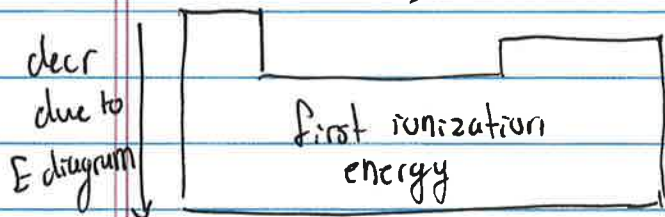 decr
due to
E diagram
first ionization
energy